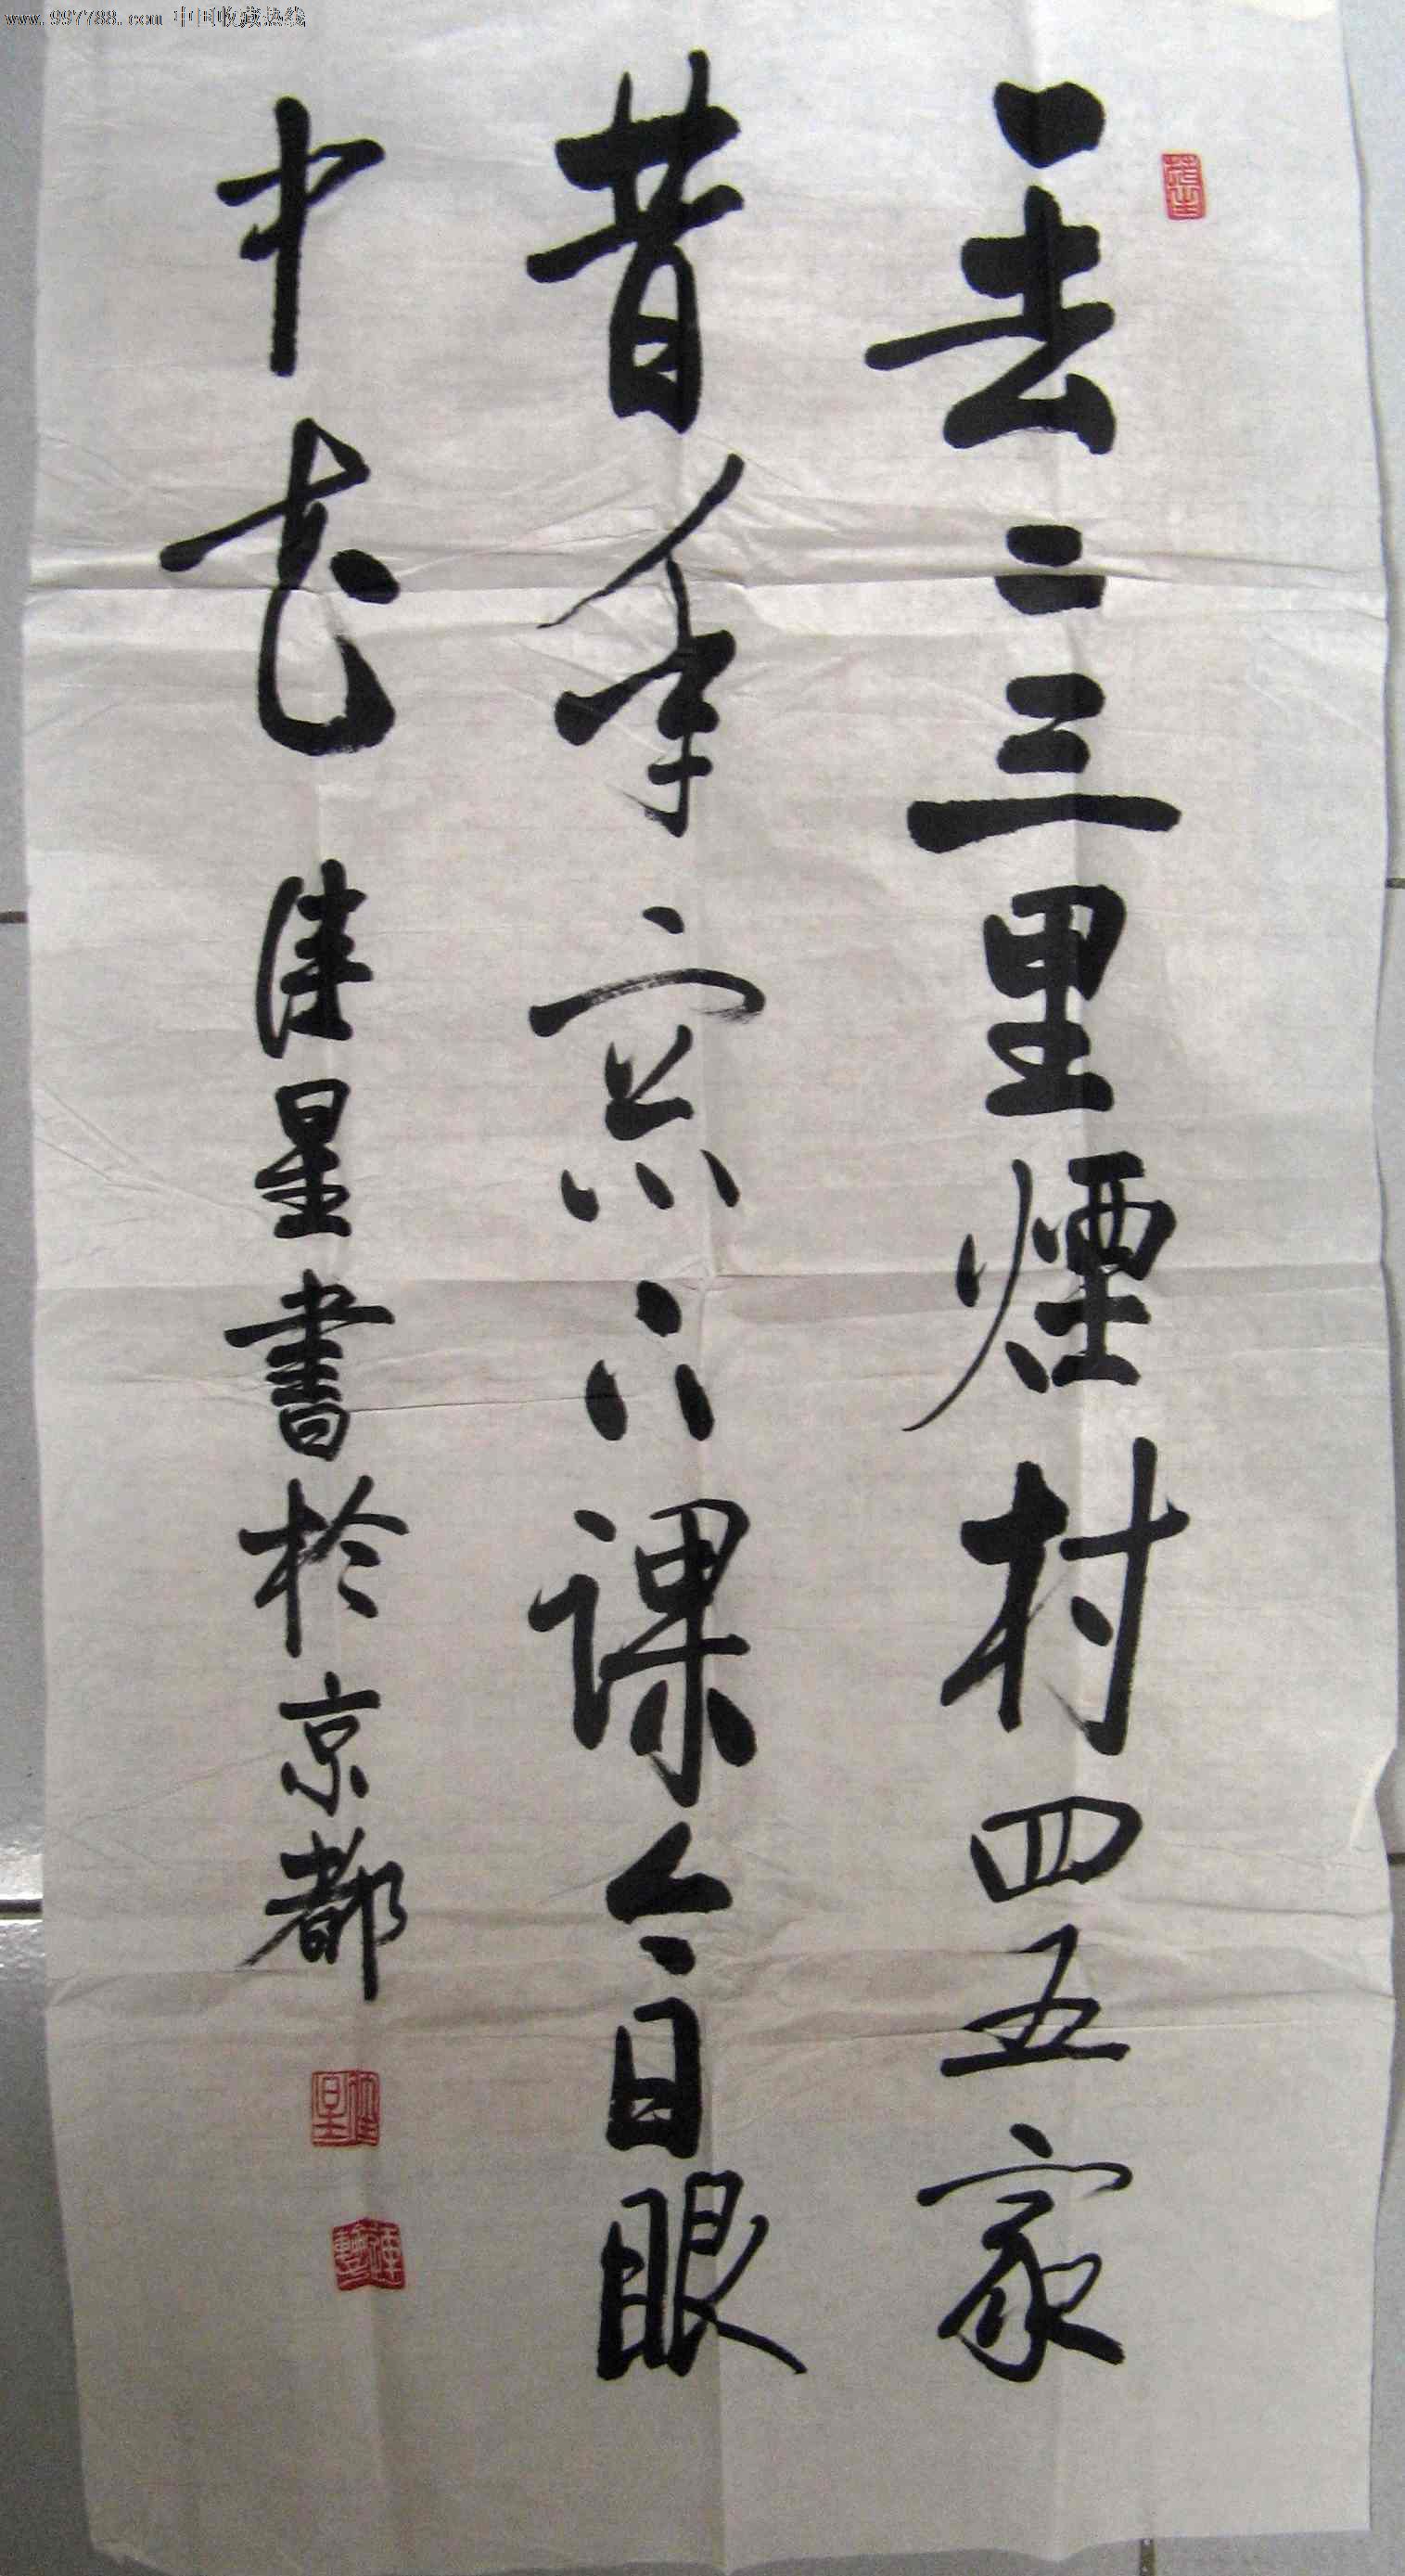 www.997788.com 中国收藏热线
一去二三里煙村四五家
昔年窓下課今日眼
中花 星書於京都